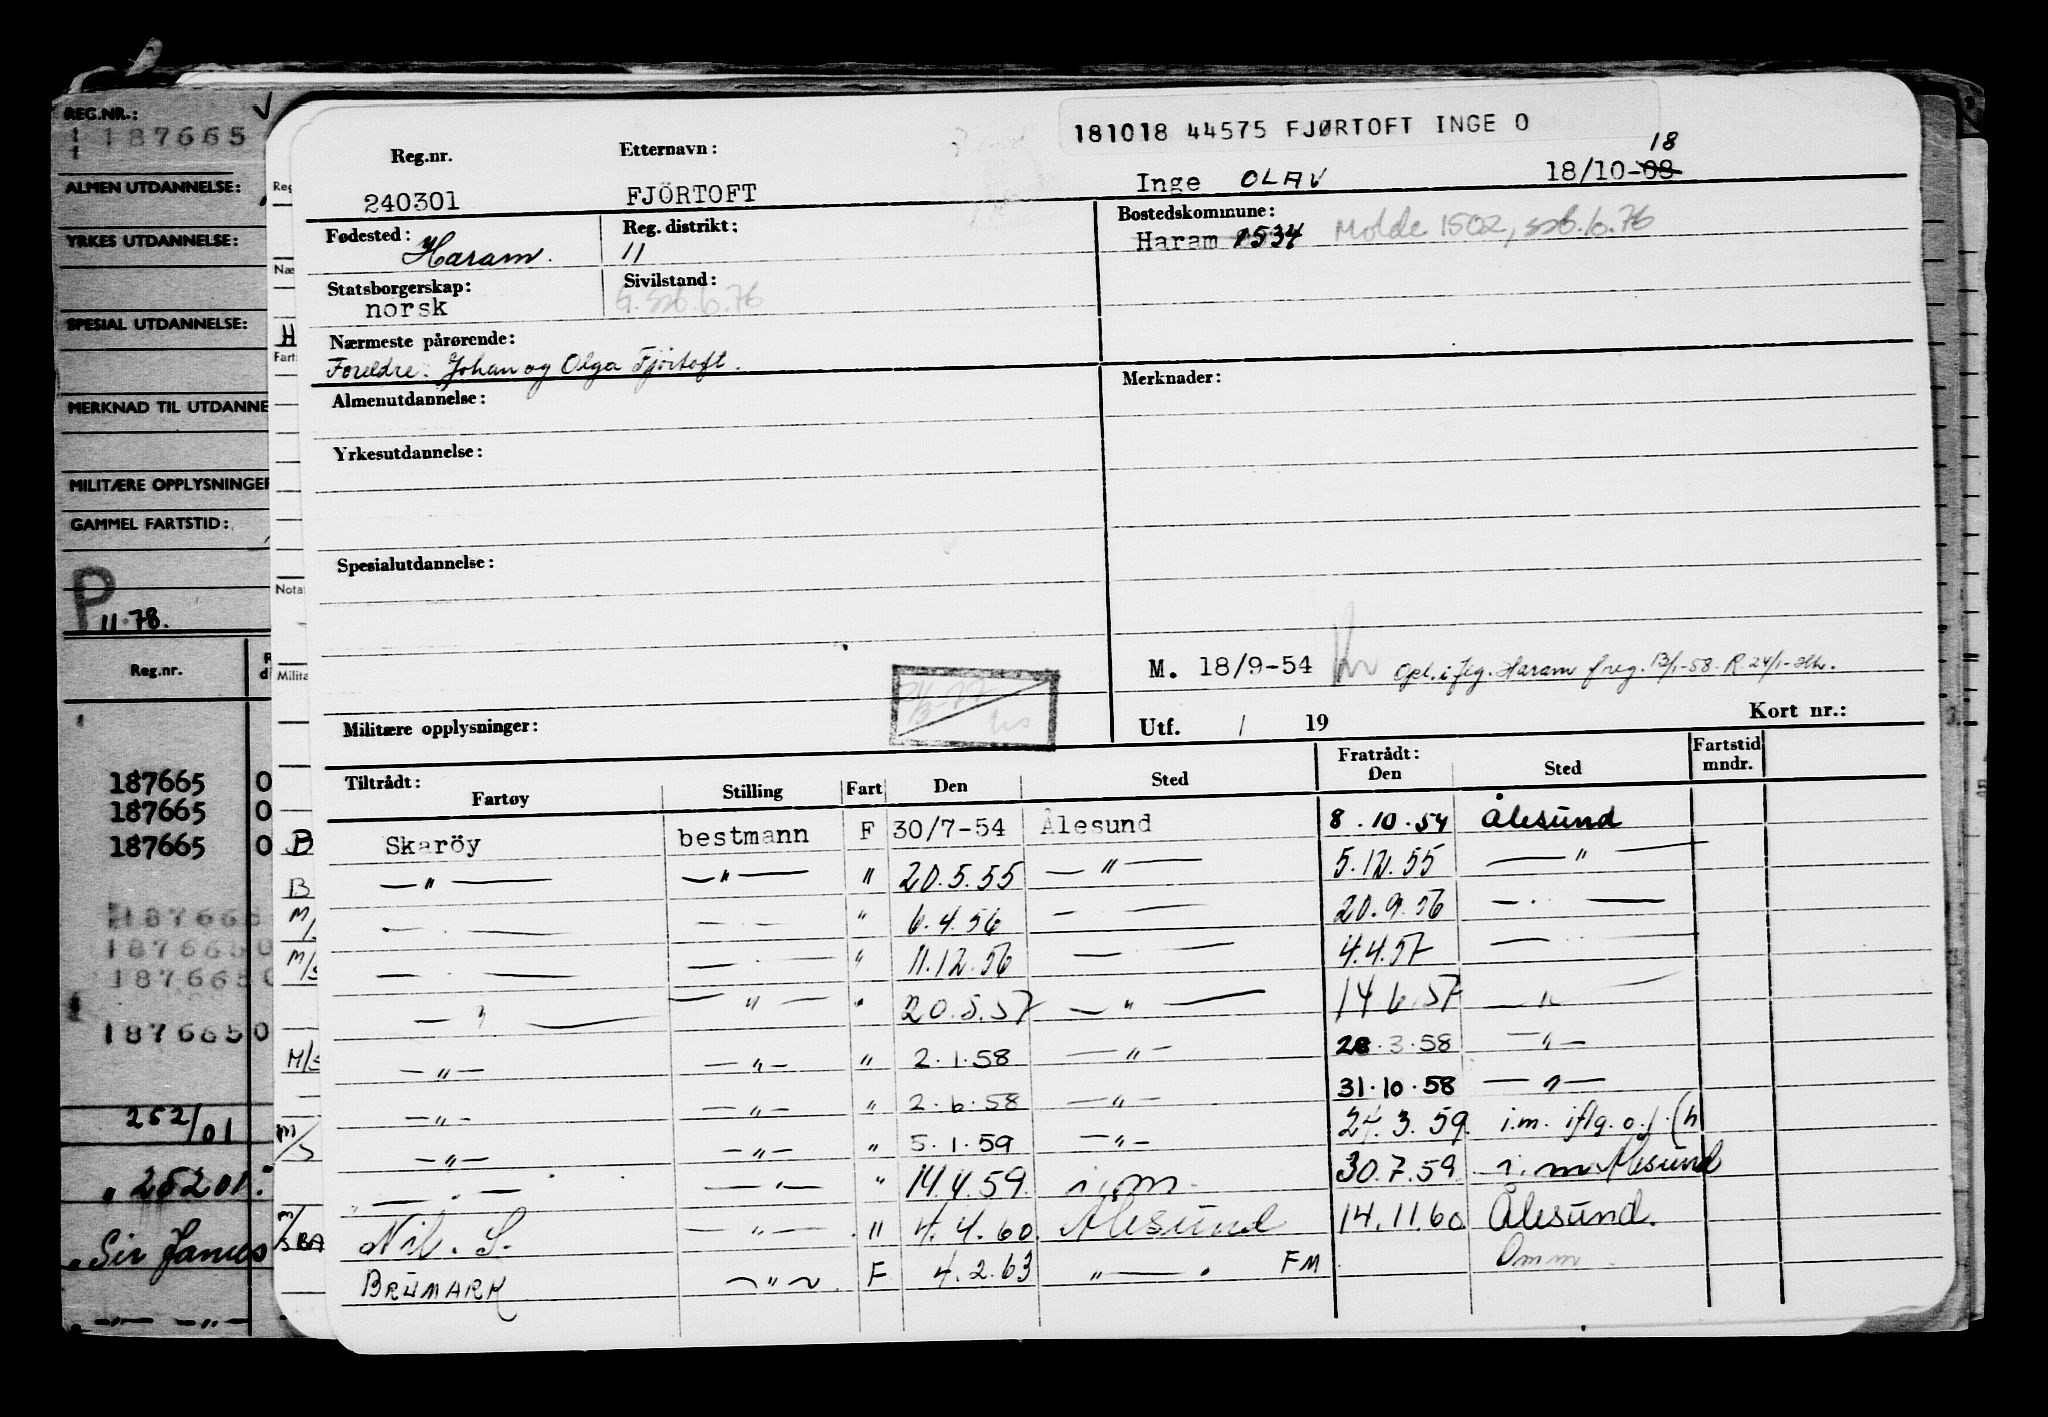 REG.NR.:
187665
ALMEN UTDANNELSE:
YRKES UTDANNELSE:
SPESIAL UTDANNELSE:
MERKNAD TIL UTDANNE
MILITÆRE OPPLYSNINGER
GAMMEL FARTSTID:
P
11.78.
Reg.nr.
187665 0
187665 0
187665 0
187665
1876650
1876650
1876650
252/01
" 25201.
"Sir James
— " — — " —
Reg
Næ
H
Fart
Nota
Milita
B
B
M/
M/S
M/S
M/S
181018 44575 FJØRTOFT INGE O
Reg.nr. Etternavn: 18
240301 FJÖRTOFT Inge OLAV 18/10-08
Fødested: Haram. Reg. distrikt: 11 Bostedskommune: Haram 1534 Molde 1502, ssb.6.76
Statsborgerskap: norsk Sivilstand: G. ssb.6.76
Nærmeste pårørende:
Foreldre: Johan og Olga Fjörtoft.
Almenutdannelse: Merknader:
Yrkesutdannelse:
Spesialutdannelse:
M. 18/9-54 Opl. i flg. Haram freg. 13/1-58. R. 24/1-
Militære opplysninger: Utf. / 19 Kort nr.:
Tiltrådt: Fartøy Stilling Fart Den Sted Fratrådt: Den Sted Fartstid mndr.
Skaröy bestmann F 30/7-54 Ålesund 8.10.54 Ålesund
— " — — " — " 20.5.55 — " — 5.12.55 — " —
— . — — . — " 6.4.56 — — 20.9.56 — . —
— . — — . — " 11.12.56 — — 4.4.57 — —
— " — — " — " 20.5.57 — " — 14.6.57 — " —
— " — — " — " 2.1.58 — " — 28.3.58 — " —
— " — — " — " 2.6.58 — " — 31.10.58 — " —
— " — — " — " 5.1.59 — " — 24.3.59. i.m. iflg. o.f. (h
— . — — " — " 14.4.59. i.m. 30.7.59 i.m Ålesund
Nil. S. — " — " 4.4.60. Ålesund 14.11.60 Ålesund.
BRUMARK — " — F 4.2.63 " — . FM Omm